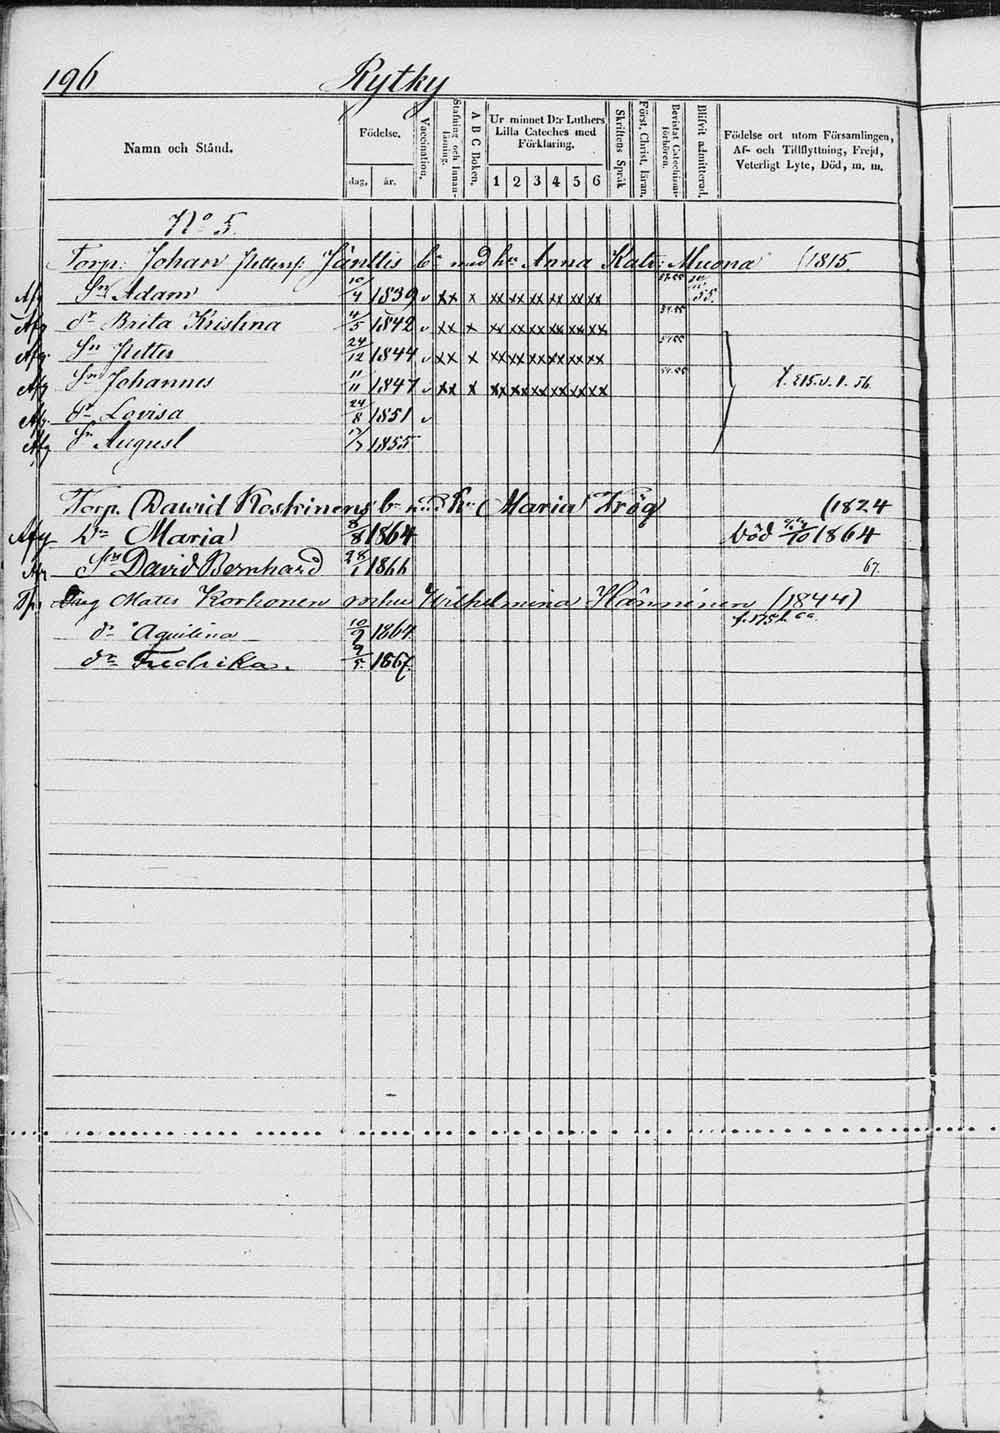 196 Rytky
Namn och Stånd. Födelse. dag, år. Vaccination. Stafning och Innanläsning. A B C Boken. Ur minnet D:r Luthers Lilla Cateches med Förklaring. 1 2 3 4 5 6 Skriftens Språk Först. Christ. läran. Bevistat Catechismiförhören. Blifvit admitterad. Födelse ort utom Församlingen, Af- och Tillflyttning, Frejd, Veterligt Lyte, Död, m. m.
No 5.
Torp: Johan Petterss: Jänttis bn med hu Anna Katr: Muona (1815.
Afg Sn Adam 10/4 1839 v xx x xx xx xx xx xx xx 55.
Afg dr Brita Kristina 11/5 1842 v xx x xx xx xx xx xx xx
Afg. Sn Petter 24/12 1844 v xx x xx xx xx xx xx xx
Afg Sn Johannes 11/11 1847 v xx x xx xx xx xx xx xx
Afg. dr Lovisa 24/8 1851 v
Afg Sn August 17/7 1855.
Torp. Dawid Koskinens bn med hu Maria Trög (1824
Afg Dr Maria 8/8 1864 Död /10 1864
Sn David Bernhard 28/1 1866 67.
Matts Korhonen Wilhelmina Hänninen (1844)
dr Aquilina 10/9 1864.
dr Fredrika. 9/5. 1867.